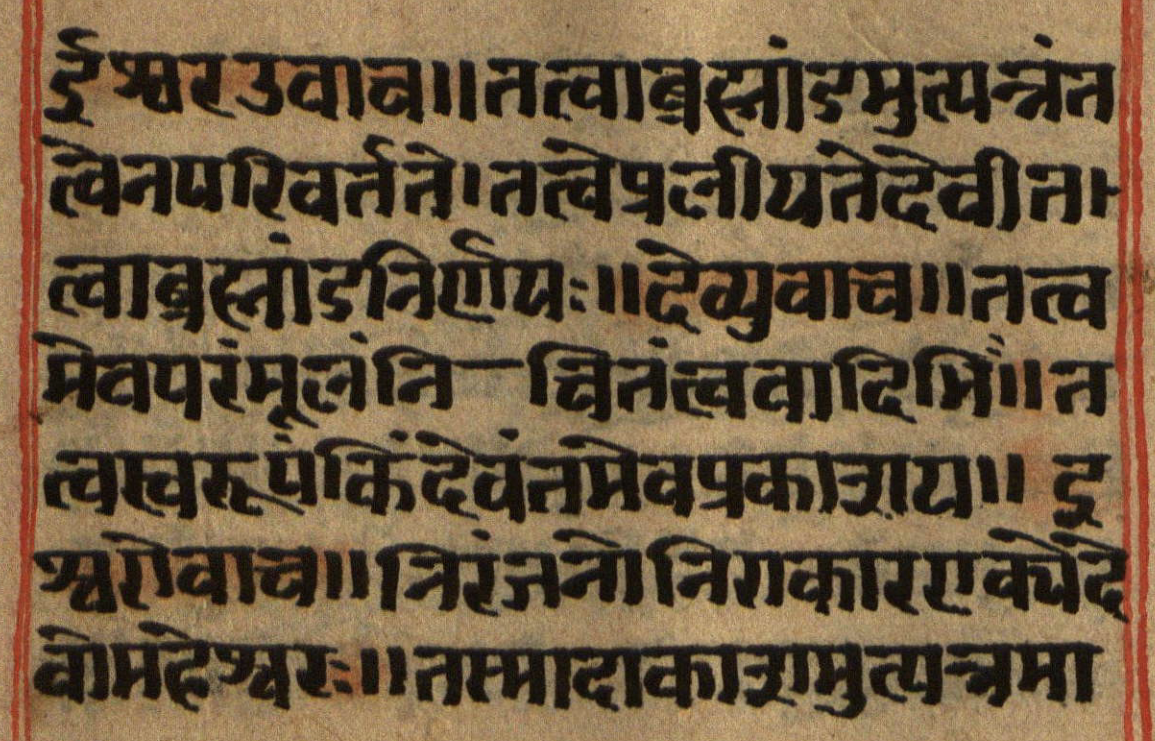 ईश्वरउवाच॥तत्वाब्रह्मांडमुत्पन्नंत
त्वेनपरिवर्तते।तत्वेप्रलीयतेदेवीत-
त्वाब्रह्मांडनिर्णयः॥देव्युवाच॥तत्व
मेवपरंमूलंनि-श्चितंत्त्ववादिभिः॥त
त्वस्वरूपंकिंदेवंतमेवप्रकाशय॥ इ
श्वरोवाच॥निरंजनोनिराकारएकोदे
वोमहेश्वरः॥तस्मादाकाशमुत्पन्नमा